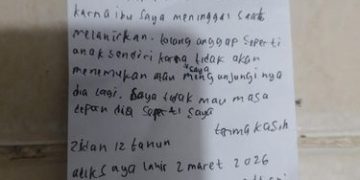 karna ibu saya meninggal saat
melahirkan. tolong anggap seperti
anak sendiri karna tidak akan
menemukan atau mengunjungi nya
saya
dia lagi. saya tidak mau masa
depan dia seperti saya
terima kasih
Zidan 12 tahun
adiks saya lahir 2 maret 2026